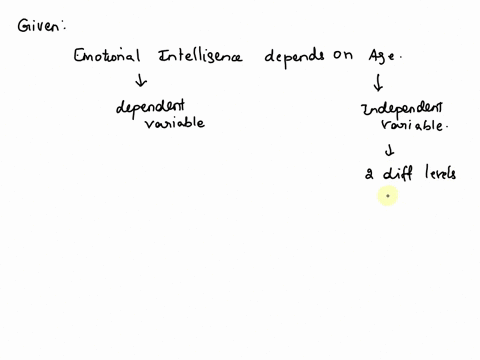 Given:
Emotional Intelligence depends on Age.
dependent variable
Independent variable.
2 diff levels